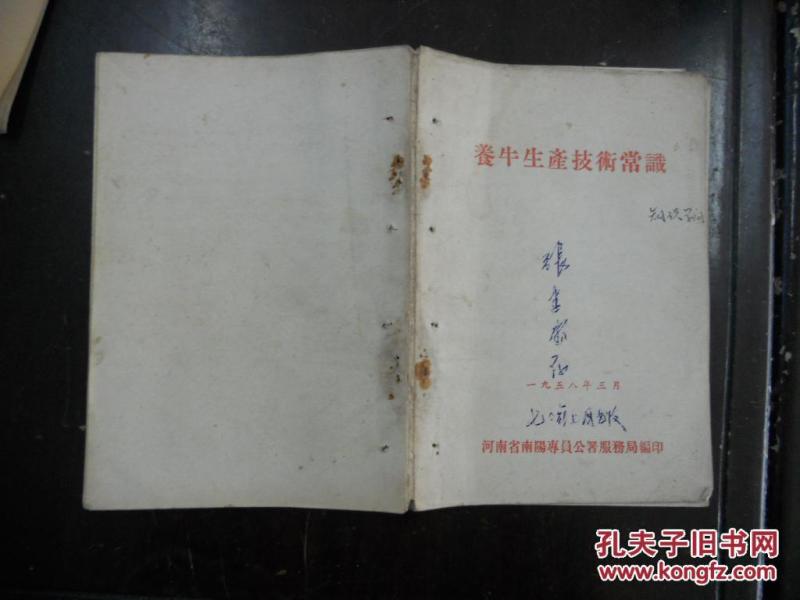 養牛生產技術常識
張
一九五八年三月
河南省南陽專員公署服務局編印
孔夫子旧书网